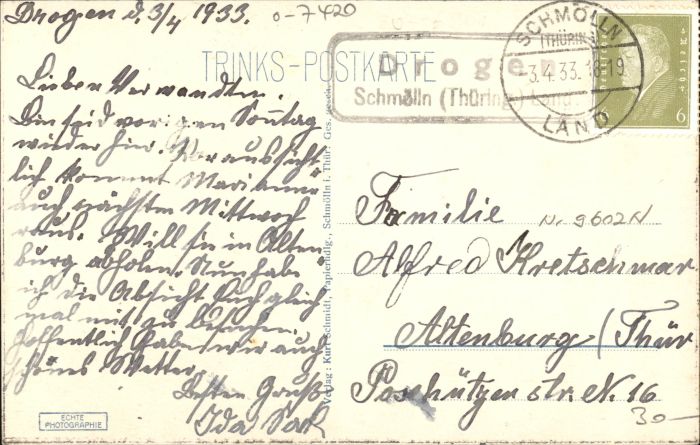 Drogen d. 3/4 1933.
o-7420
TRINKS-POSTKARTE
Drogen
Schmölln (Thüring.) Land
SCHMÖLLN
(THÜRIN
3.4.33.18-19
LAND
6
Lieben Verwandten.
Bin seid vorigen Sonntag
wieder hier. Voraussicht
lich kommt Marianne
auch nächsten Mittwoch
raus. Will sie in Alten
burg abholen. Nun habe
ich die Absicht Euch gleich
mal mit zu besuchen.
Hoffentlich haben wir auch
schönes Wetter.
Besten Gruß
Ida
Verlag: Kurt Schmidt, Papierhdlg., Schmölln i. Thür. Ges. gesch.
Familie
N. 9602N
Alfred Kretschmar
Altenburg/Thür
Poschützer str. N. 16
30-
ECHTE
PHOTOGRAPHIE